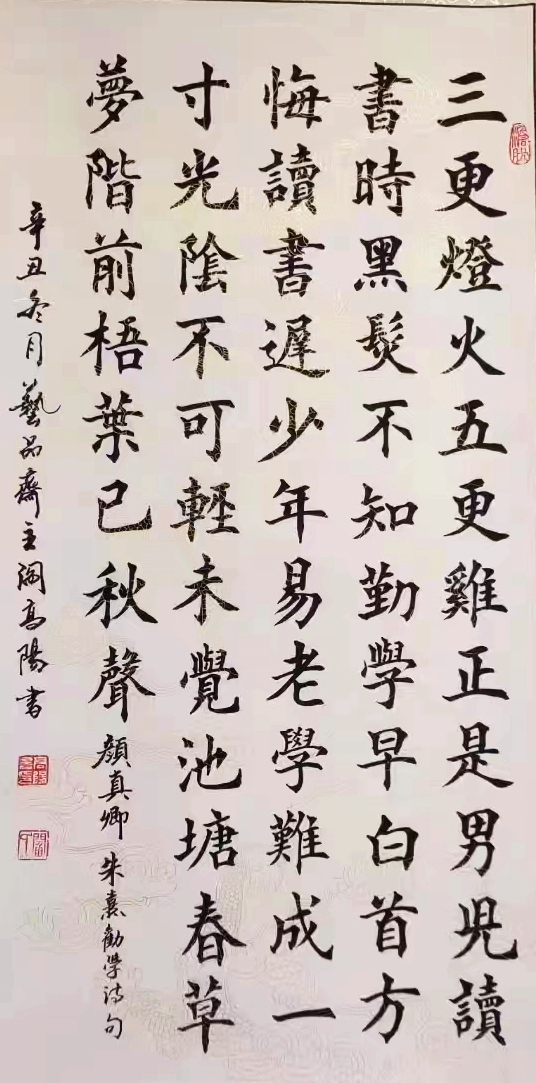 三更燈火五更雞正是男兒讀
書時黑髮不知勤學早白首方
悔讀書遲少年易老學難成一
寸光陰不可輕未覺池塘春草
夢階前梧葉已秋聲
顏真卿 朱熹勸學詩句
辛丑冬月藝品齋主闞高陽書